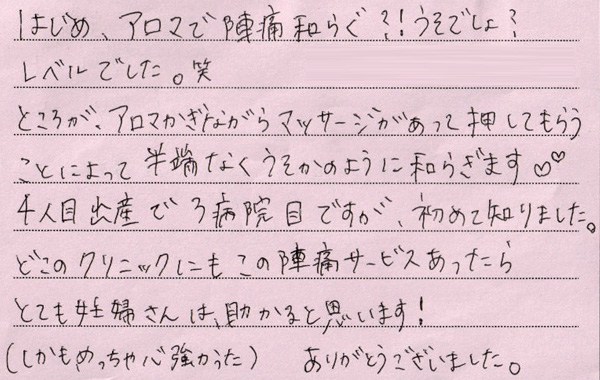 はじめ、アロマで陣痛和らぐ?!うそでしょ?
レベルでした。笑
ところが、アロマかぎながらマッサージがあって押してもらう
ことによって半端なくうそかのように和らぎます♡♡
4人目出産で3病院目ですが、初めて知りました。
どこのクリニックにもこの陣痛サービスあったら
とても妊婦さんは、助かると思います!
(しかもめっちゃ心強かった) ありがとうございました。